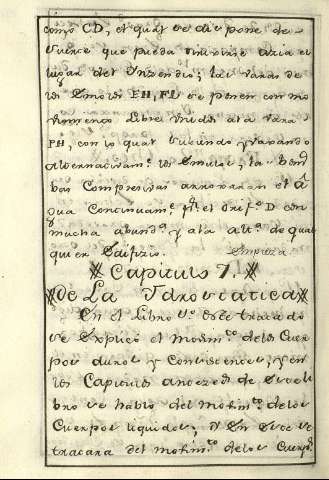 como CD, el qual se dispone de
suerte que pueda inclinarse azia el
lugar del Inzendio; las varas de
los Emolos EH, FL se ponen con mo
vimiento libre unidas a la vara
PH, con lo qual subiendo, y vaxando
alternativam.te los Emulos, las bom
bas Compresivas arrojaran el A
gua Continuam.te p.r el orif.o D con
mucha abund.a y a la alt.a de qual
quier Edifizio. Empieza
Capitulo 7.
De La Idrostatica
En el Libro 1.o de este tratado
se Explicó el movim.to de los Cuer
pos duros, y Consistentes, y en
los Capitulos antezed.s de este li
bro se habló del movim.to de los
Cuerpos liquidos; y En este se
tratara del movim.to de los Cuerp.s